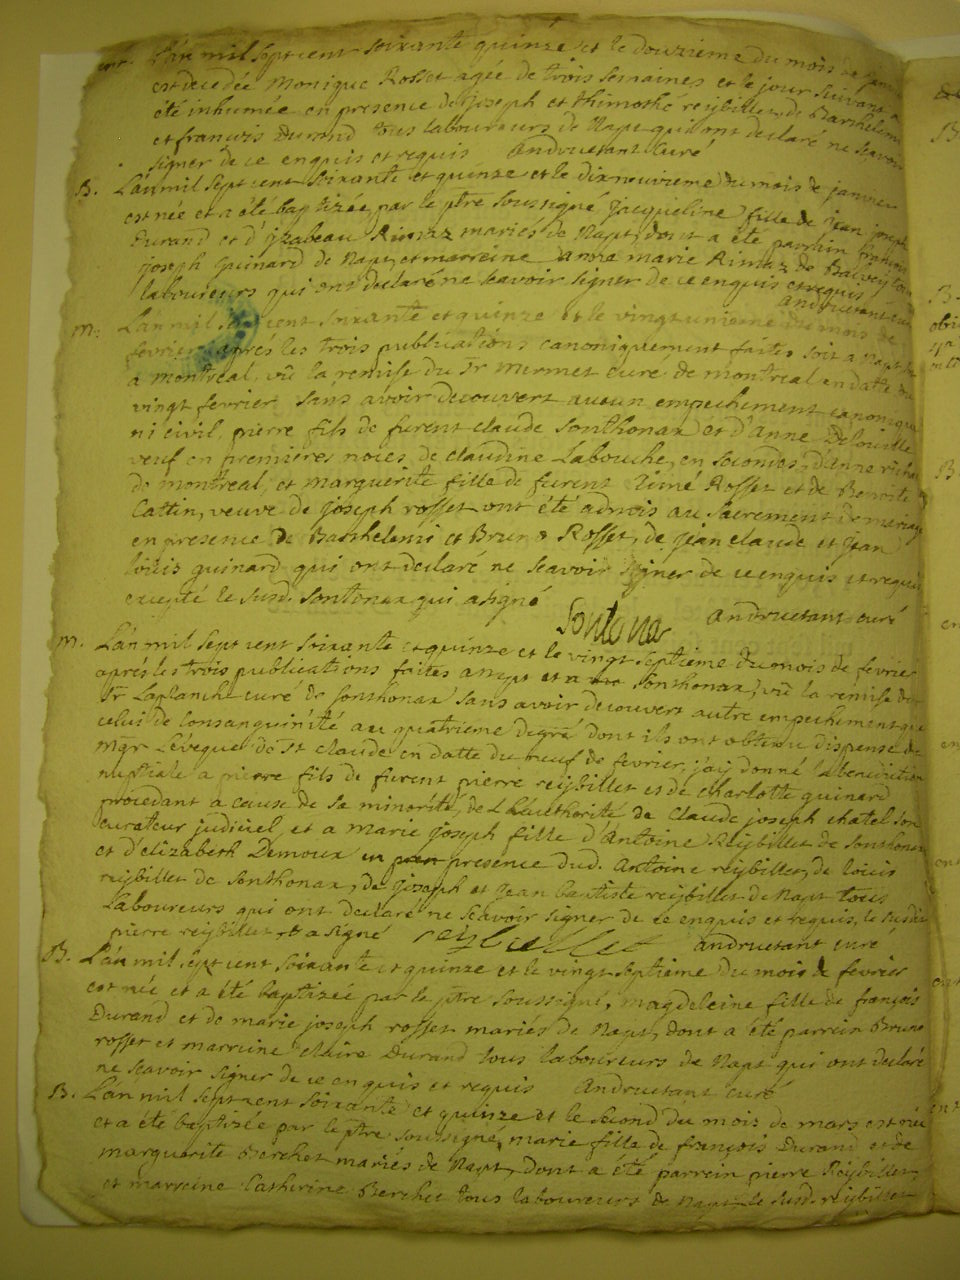 ent. L'an mil sept cent soixante quinze et le douzieme du mois de janvier
est decedée Monique Rosset agée de trois semaines et le jour suivant a
été inhumée en presence de joseph et thimothé reijbillet, de Barthelemi
et francois Durand tous laboureurs de Napt qui ont declaré ne scavoir
signer de ce enquis et requis Andructant curé
B. L'an mil sept cent soixante et quinze et le dixneuvieme du mois de janvier
est née et a été baptizée par le ptre soussigné jacqueline fille de jean joseph
Durand et d'yzabeau Rimaz mariés de Napt, dont a été parrain francois
joseph guinard de Napt, et marreine anna marie Rimaz de tous
laboureurs qui ont declaré ne scavoir signer de ce enquis et requis
Andructant curé
M. L'an mil sept cent soixante et quinze et le vingt unieme du mois de
fevrier aprés les trois publications canoniquement faites soit a Napt soit
a montréal, vû la remise du Sr mermet curé de montreal en datte du
vingt fevrier sans avoir decouvert aucun empechement canonique
ni civil, pierre fils de furent claude Sonthonax et d'Anne
veuf en premières noces de claudine Labouche, en secondes, d'anne
de montreal, et marguerite fille de furent aimé Rosset et de Benoite
Cattin, veuve de joseph rosset ont été admis au Sacrement de mariage
en presence de Barthelemi et Bruno Rosset, de jean claude et jean
louis guinard qui ont declaré ne scavoir signer de ce enquis et requis
excepté le susd. Sontonax qui a signé
Sontona Andructant curé
M. L'an mil sept cent soixante et quinze et le vingt septieme du mois de fevrier
aprés les trois publications faites a napt et a Sonthonax, vû la remise du
Sr Laplanche curé de Sonthonax sans avoir decouvert autre empechement que
celui de Consanguinité au quatrieme degré dont ils ont obtenu dispense de
Mgr Lévêque de St claude en datte du neuf de fevrier, j'ay donné la benediction
nuptiale a pierre fils de furent pierre reijbillet et de charlotte guinard
procedant a cause de sa minorité, de L'hauthorité de Claude joseph chatel son
curateur judiciel, et a marie joseph fille d'Antoine Reijbillet de Sonthonax
et d'elizabeth Demoux en presence dud. Antoine reijbillet, de louis
reijbillet de Sonthonax, de joseph et jean baptiste reijbillet de Napt tous
Laboureurs qui ont declaré ne scavoir signer de ce enquis et requis, le susdit
pierre reijbillet a signé reybiellet andructant curé
B. L'an mil sept cent soixante et quinze et le vingt septieme du mois de fevrier
est née et a été baptizée par le ptre soussigné, magdeleine fille de francois
Durand et de marie joseph rosset mariés de Napt, dont a été parrein Bruno
rosset et marreine claire Durand tous laboureurs de Napt qui ont declaré
ne scavoir signer de ce enquis et requis Andructant curé
B. L'an mil sept cent soixante et quinze et le second du mois de mars est née
et a été baptizée par le ptre soussigné, marie fille de francois Durand et de
marguerite Berchet mariés de Napt, dont a été parrein pierre Reijbillet,
et marreine Catherine Berchet tous laboureurs de Napt le susd. reijbillet